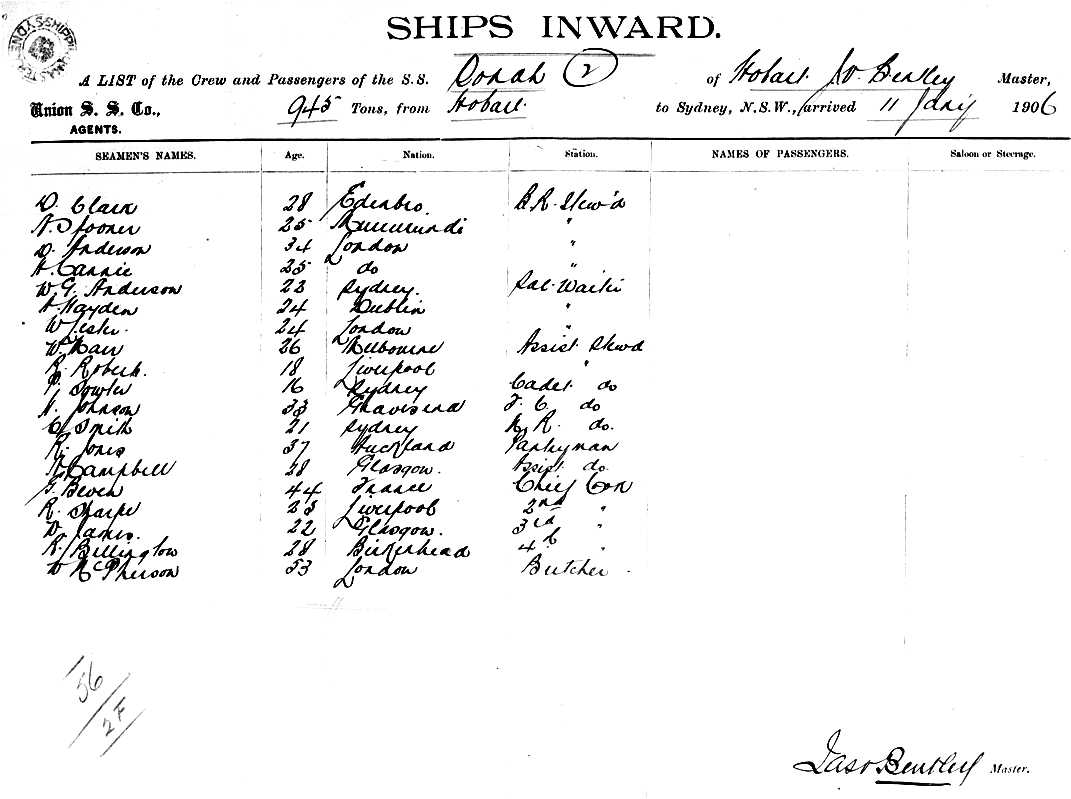 SHIPS INWARD.
A LIST of the Crew and Passengers of the S.S. Oonah (2) of Hobart J.W. Bentley Master,
Union S. S. Co., 945 Tons, from Hobart to Sydney, N.S.W., arrived 11 1906
AGENTS.
SEAMEN'S NAMES. Age. Nation. Station. NAMES OF PASSENGERS. Saloon or Steerage.
D. Clark 28 Edenbro B.R. Stew'd
A. Spooner 25 "
D. Anderson 34 London "
A. Cannie 25 do "
W G. Anderson 23 Sydney. Sal. Waiter
A Hayden 24 Dublin "
W Lester. 24 London "
W. Marr 26 Melbourne Assist Stewd
R. Roberts. 18 Liverpool "
Fowler 16 Sydney Cadet do
A. Johnson 33 Gravesend F. C. do
C. Smith 21 Sydney do.
R. Jones 37 Auckland Pantryman
A Campbell 28 Glasgow. Assist. do.
G. Beven 44 France Chief Cook
R. Sharpe 23 Liverpool 2nd "
D. James. 22 Glasgow. 3rd "
R. Billington 28 Birkenhead 4th "
D McPherson 53 London Butcher.
56
2F
Jas W Bentley Master.